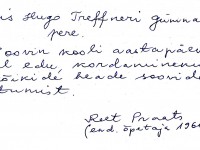 is Hugo Treffneri Gümna
pere.
oovin kooli aastapäev
l edu, kordaminenu
õikide heade soovide
tumist.
Reet Praats
(end. õpetaja 196